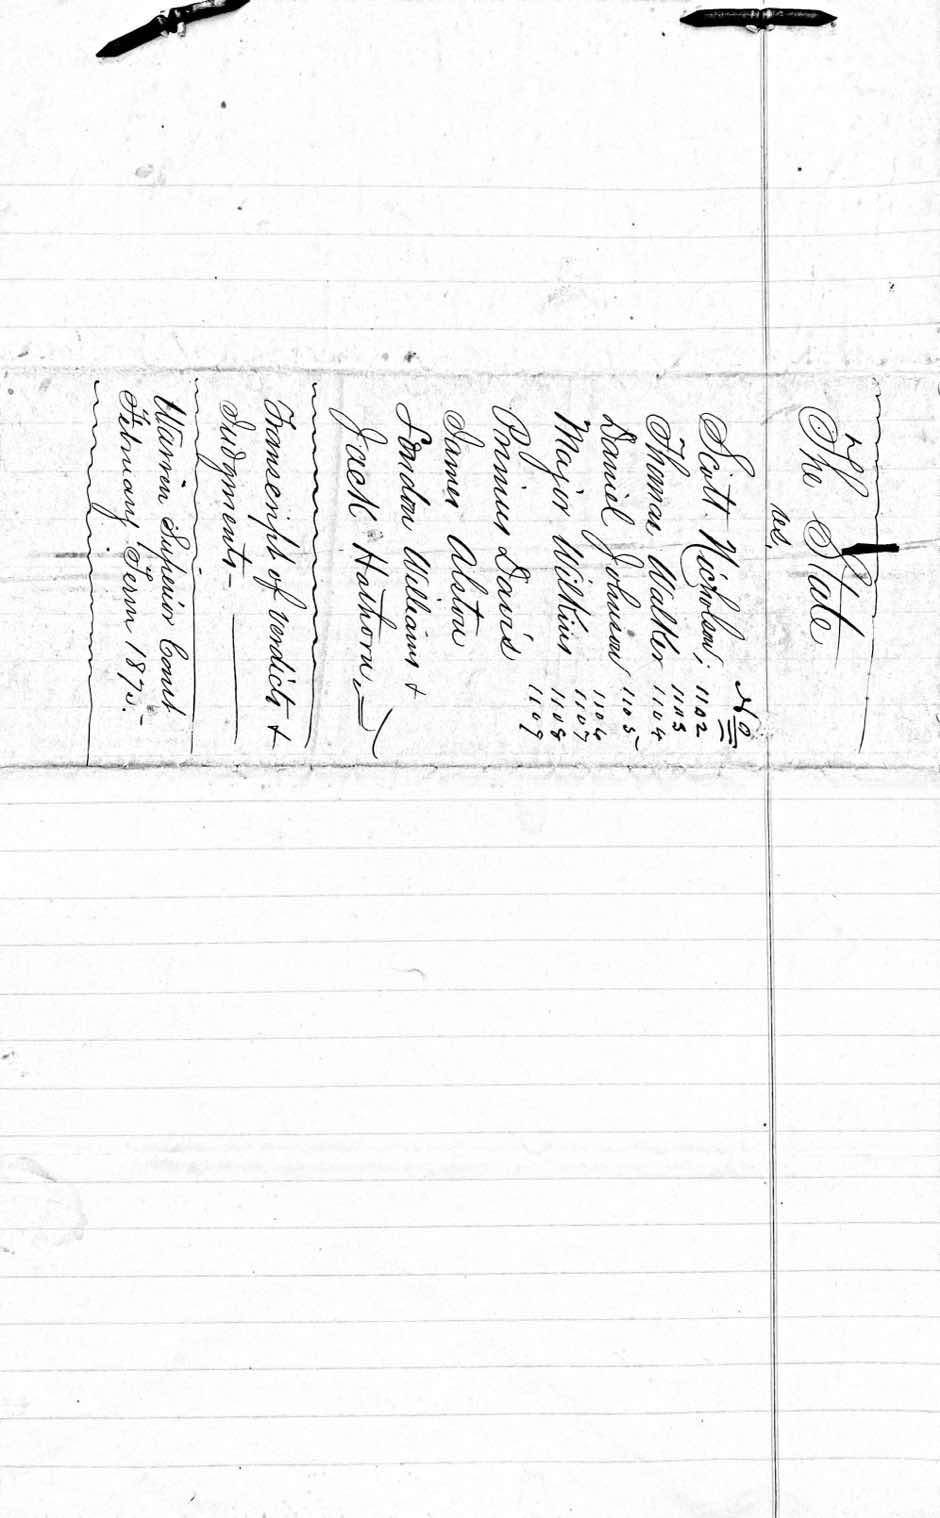 The State
vs.
No
Scott Nicholson; 1102
1103
Thomas Walker 1104
Daniel Johnson 1105
1106
Major Wilkins 1107
1108
Davis 1109
James Alston
London Williams &
Jack Hathorn,
Transcript of verdicts &
Judgments-
Warren Superior Court
February Term 1875.-